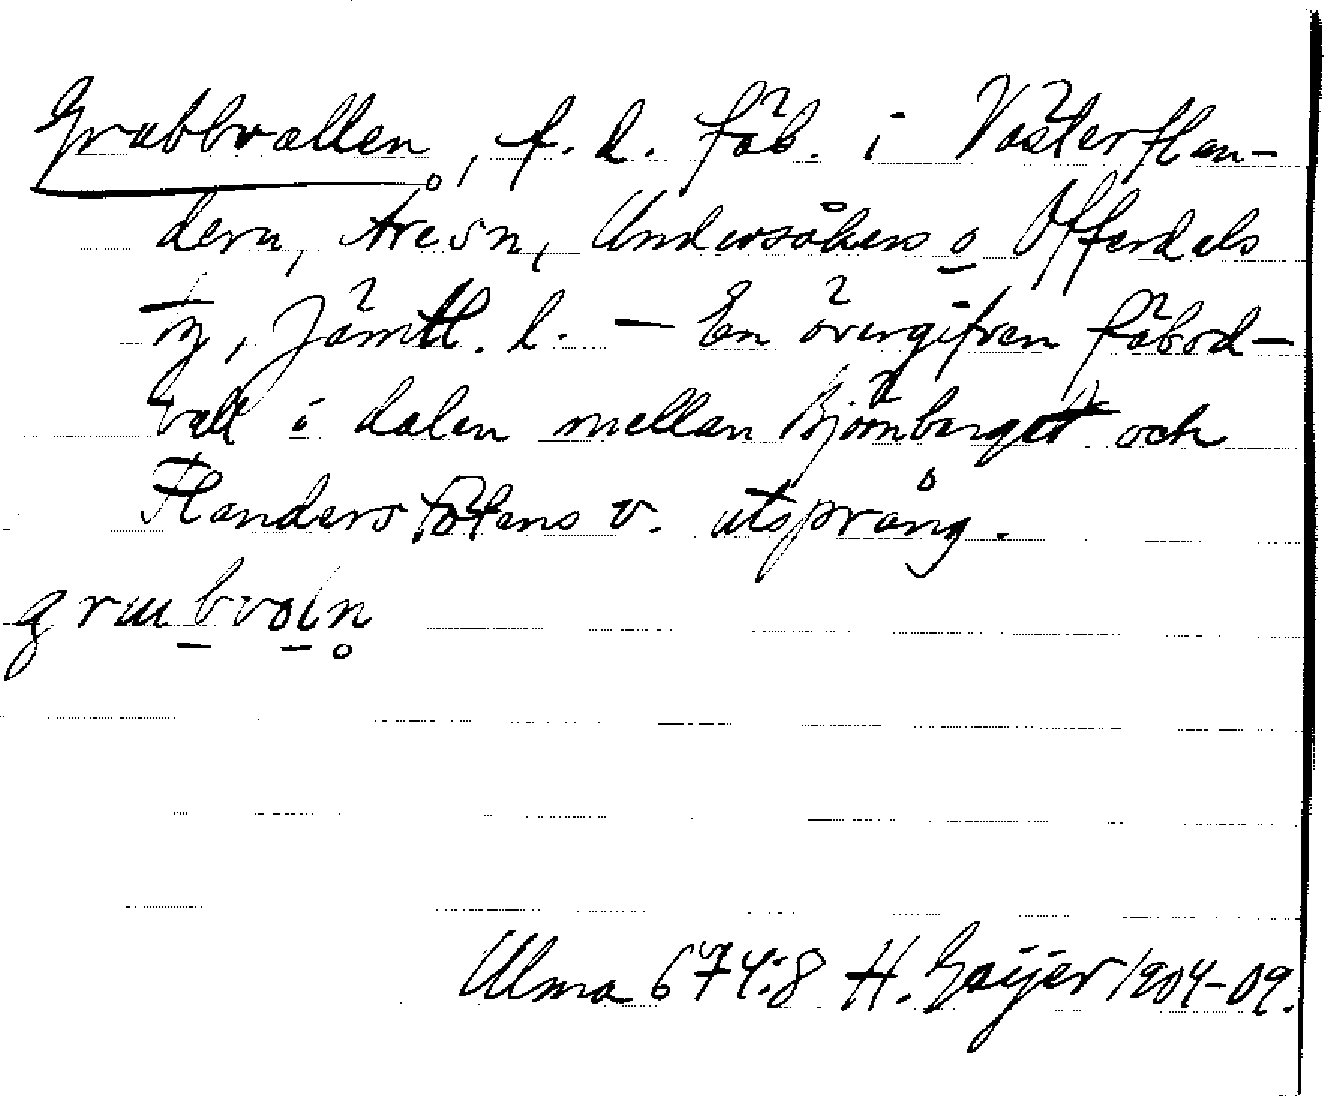 Grubbvallen, f. d. fäb. i Västerflan-
dern, Åre sn, Undersåkers o Offerdals
tg, Jämtl. l. — En övergifven fäbod-
vall i dalen mellan Björnberget och
Flandersfötens v. utsprång.
grubvoln
Ulma 674:8 H. Geijer 1904-09.